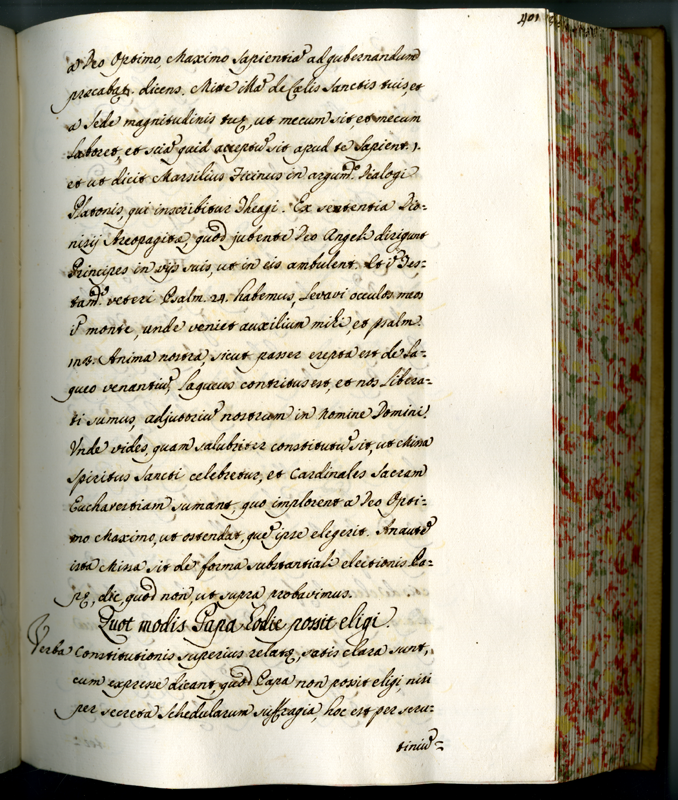 401
a Deo Optimo Maximo Sapientiā ad gubernandum
præcabat. dicens. Mitte illā de Cælis Sanctis tuis et
a Sede magnitudinis tuę, ut mecum sit et mecum
Laboret, et sciā quid acceptū sit apud te Sapient. 1.
et ut dicit Marsilius Ficinus in argum. Dialogi
Platonis, qui inscribitur Theagi. Ex sententia Dio-
nisij Areopagitæ, quod jubente Deo Angeli dirigunt
Principes in vijs suis, ut in eis ambulent. Et ī Tes-
tam. veteri Psalm. 24. habemus, Levavi occulos meos
ī monte, unde veniet auxilium mihi, et psalm.
Anima nostra sicut passer erepta est de La-
queo venantiū, Laqueus contritus est, et nos Libera-
ti sumus, adjutoriū nostrum in Nomine Domini.
Unde vides, quam salubriter constitutū sit, ut Missa
Spiritus Sancti celebretur, et Cardinales Sacram
Eucharistiam sumant, quo implorent a Deo Opti-
mo Maximo, ut ostendat, quē ipse elegerit. An autē
ista Missa sit de forma substantiali electionis Pa-
pę, dic, quod non, ut supra probavimus.
Quot modis Papa hodie possit eligi.
Verba Constitutionis superius relatę, satis clara sunt,
cum expresse dicant, quod Papa non possit eligi, nisi
per secreta Schedularum suffragia, hoc est per scru-
tiniū-